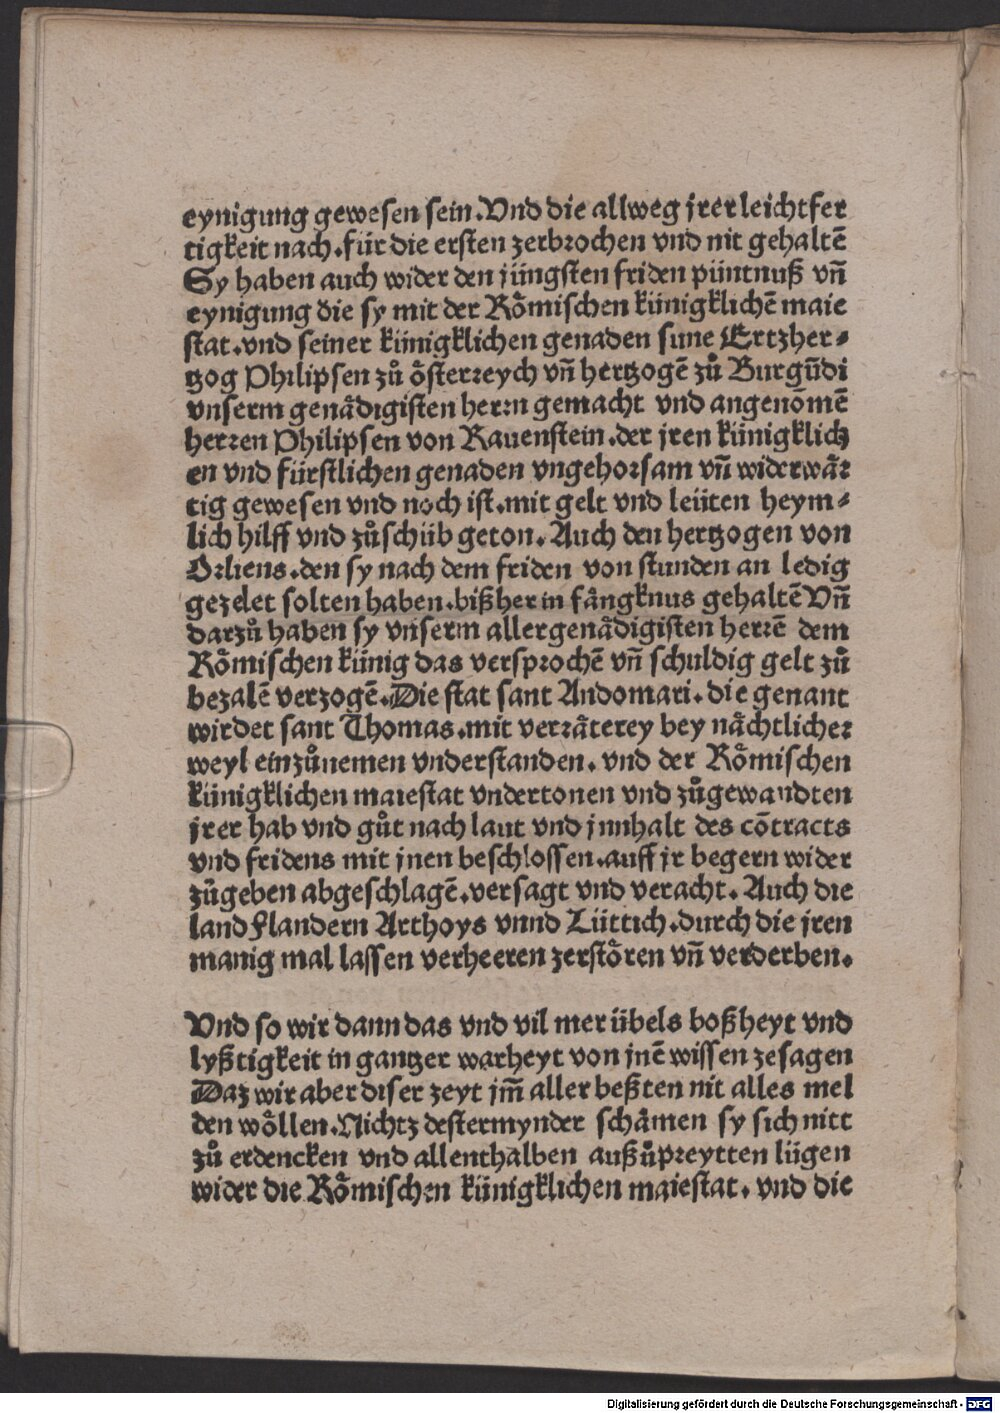 eynigung gewesen sein.Vnd die allweg jrer leichtfer
tigkeit nach.für die ersten zerbrochen vnd nit gehaltē
Sy haben auch wider den jüngsten friden püntnuß vn̄
eynigung die sy mit der Rōmischen künigklichē maie
stat.vnd seiner künigklichen genaden sune Ertzher⸗
tzog Philipsen zů oͤsterreych vn̄ hertzogē zů Burgūdi
vnserm genaͤdigisten herrn gemacht vnd angenōmē
herren Philipsen von Rauenstein.der jren künigklich
en vnd fürstlichen genaden vngehorsam vn̄ widerwaͤr
tig gewesen vnd noch ist.mit gelt vnd leüten heym⸗
lich hilff vnd zůschüb geton. Auch den hertzogen von
Orliens.den sy nach dem friden von stunden an ledig
gezelet solten haben.bißher in faͤngknus gehaltē Vn̄
darzů haben sy vnserm allergenaͤdigisten herrē dem
Roͤmischen künig das versprochē vn̄ schuldig gelt zů
bezalē verzogē.Die stat sant Andomari.die genant
wirdet sant Thomas.mit verraͤterey bey naͤchtlicher
weyl einzůnemen vnderstanden. vnd der Roͤmischen
künigklichen maiestat vndertonen vnd zůgewandten
jrer hab vnd gůt nach laut vnd jnnhalt des cōtracts
vnd fridens mit jnen beschlossen.auff jr begern wider
zůgeben abgeschlagē.versagt vnd veracht. Auch die
land flandern Arthoys vnnd Lüttich.durch die jren
manig mal lassen verheeren zerstoͤren vn̄ verderben.
Vnd so wir dann das vnd vil mer übels boßheyt vnd
lyßtigkeit in gantzer warheyt von jnē wissen zesagen
Daz wir aber diser zeyt jm̄ aller beßten nit alles mel
den woͤllen.Nichtz destermynder schaͤmen sy sich nitt
zů erdencken vnd allenthalben außůpreytten lügen
wider die Roͤmischen künigklichen maiestat. vnd die
Digitalisierung gefördert durch die Deutsche Forschungsgemeinschaft - DFG